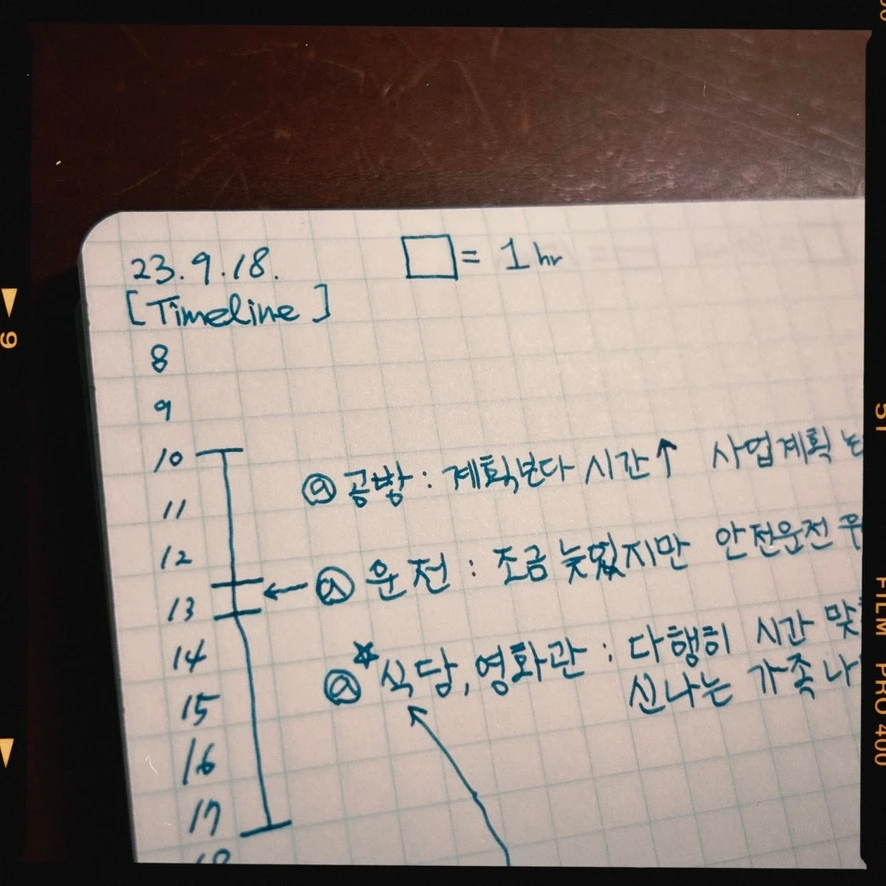 23.9.18.
□ = 1 hr
[Timeline]
8
9
10
ⓐ 공방 : 계획보다 시간↑ 사업계획
11
12
ⓐ 운전 : 조금 늦었지만 안전운전
13
14
ⓐ* 식당, 영화관 : 다행히 시간
신나는 가족
15
16
17
18
9
51
FILM PRO 400